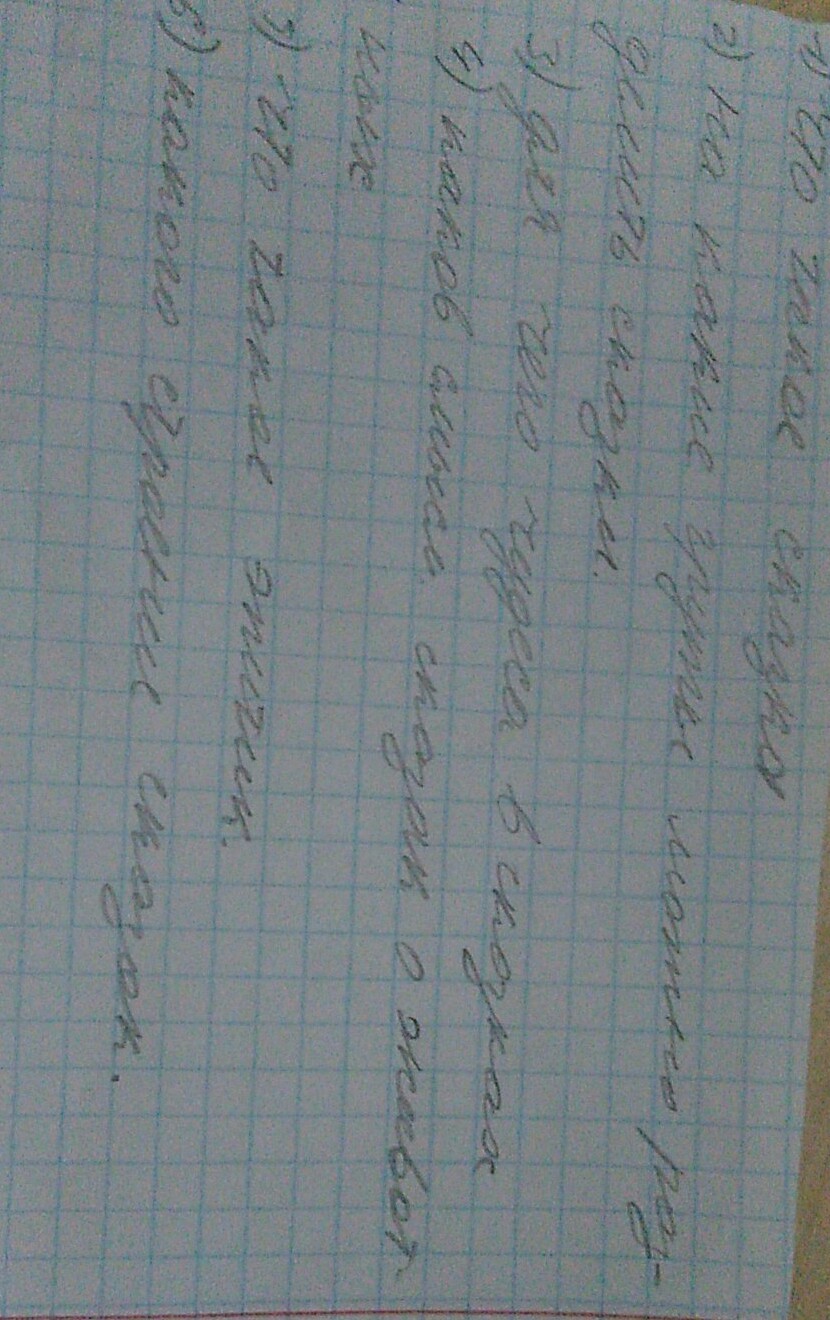 1) что такое сказка
2) на какие группы можно раз-
делить сказки.
3) для чего чудеса в сказках
4) каков смысл сказок о живот-
ных
5) что такое эпитет.
6) каково строение сказок.